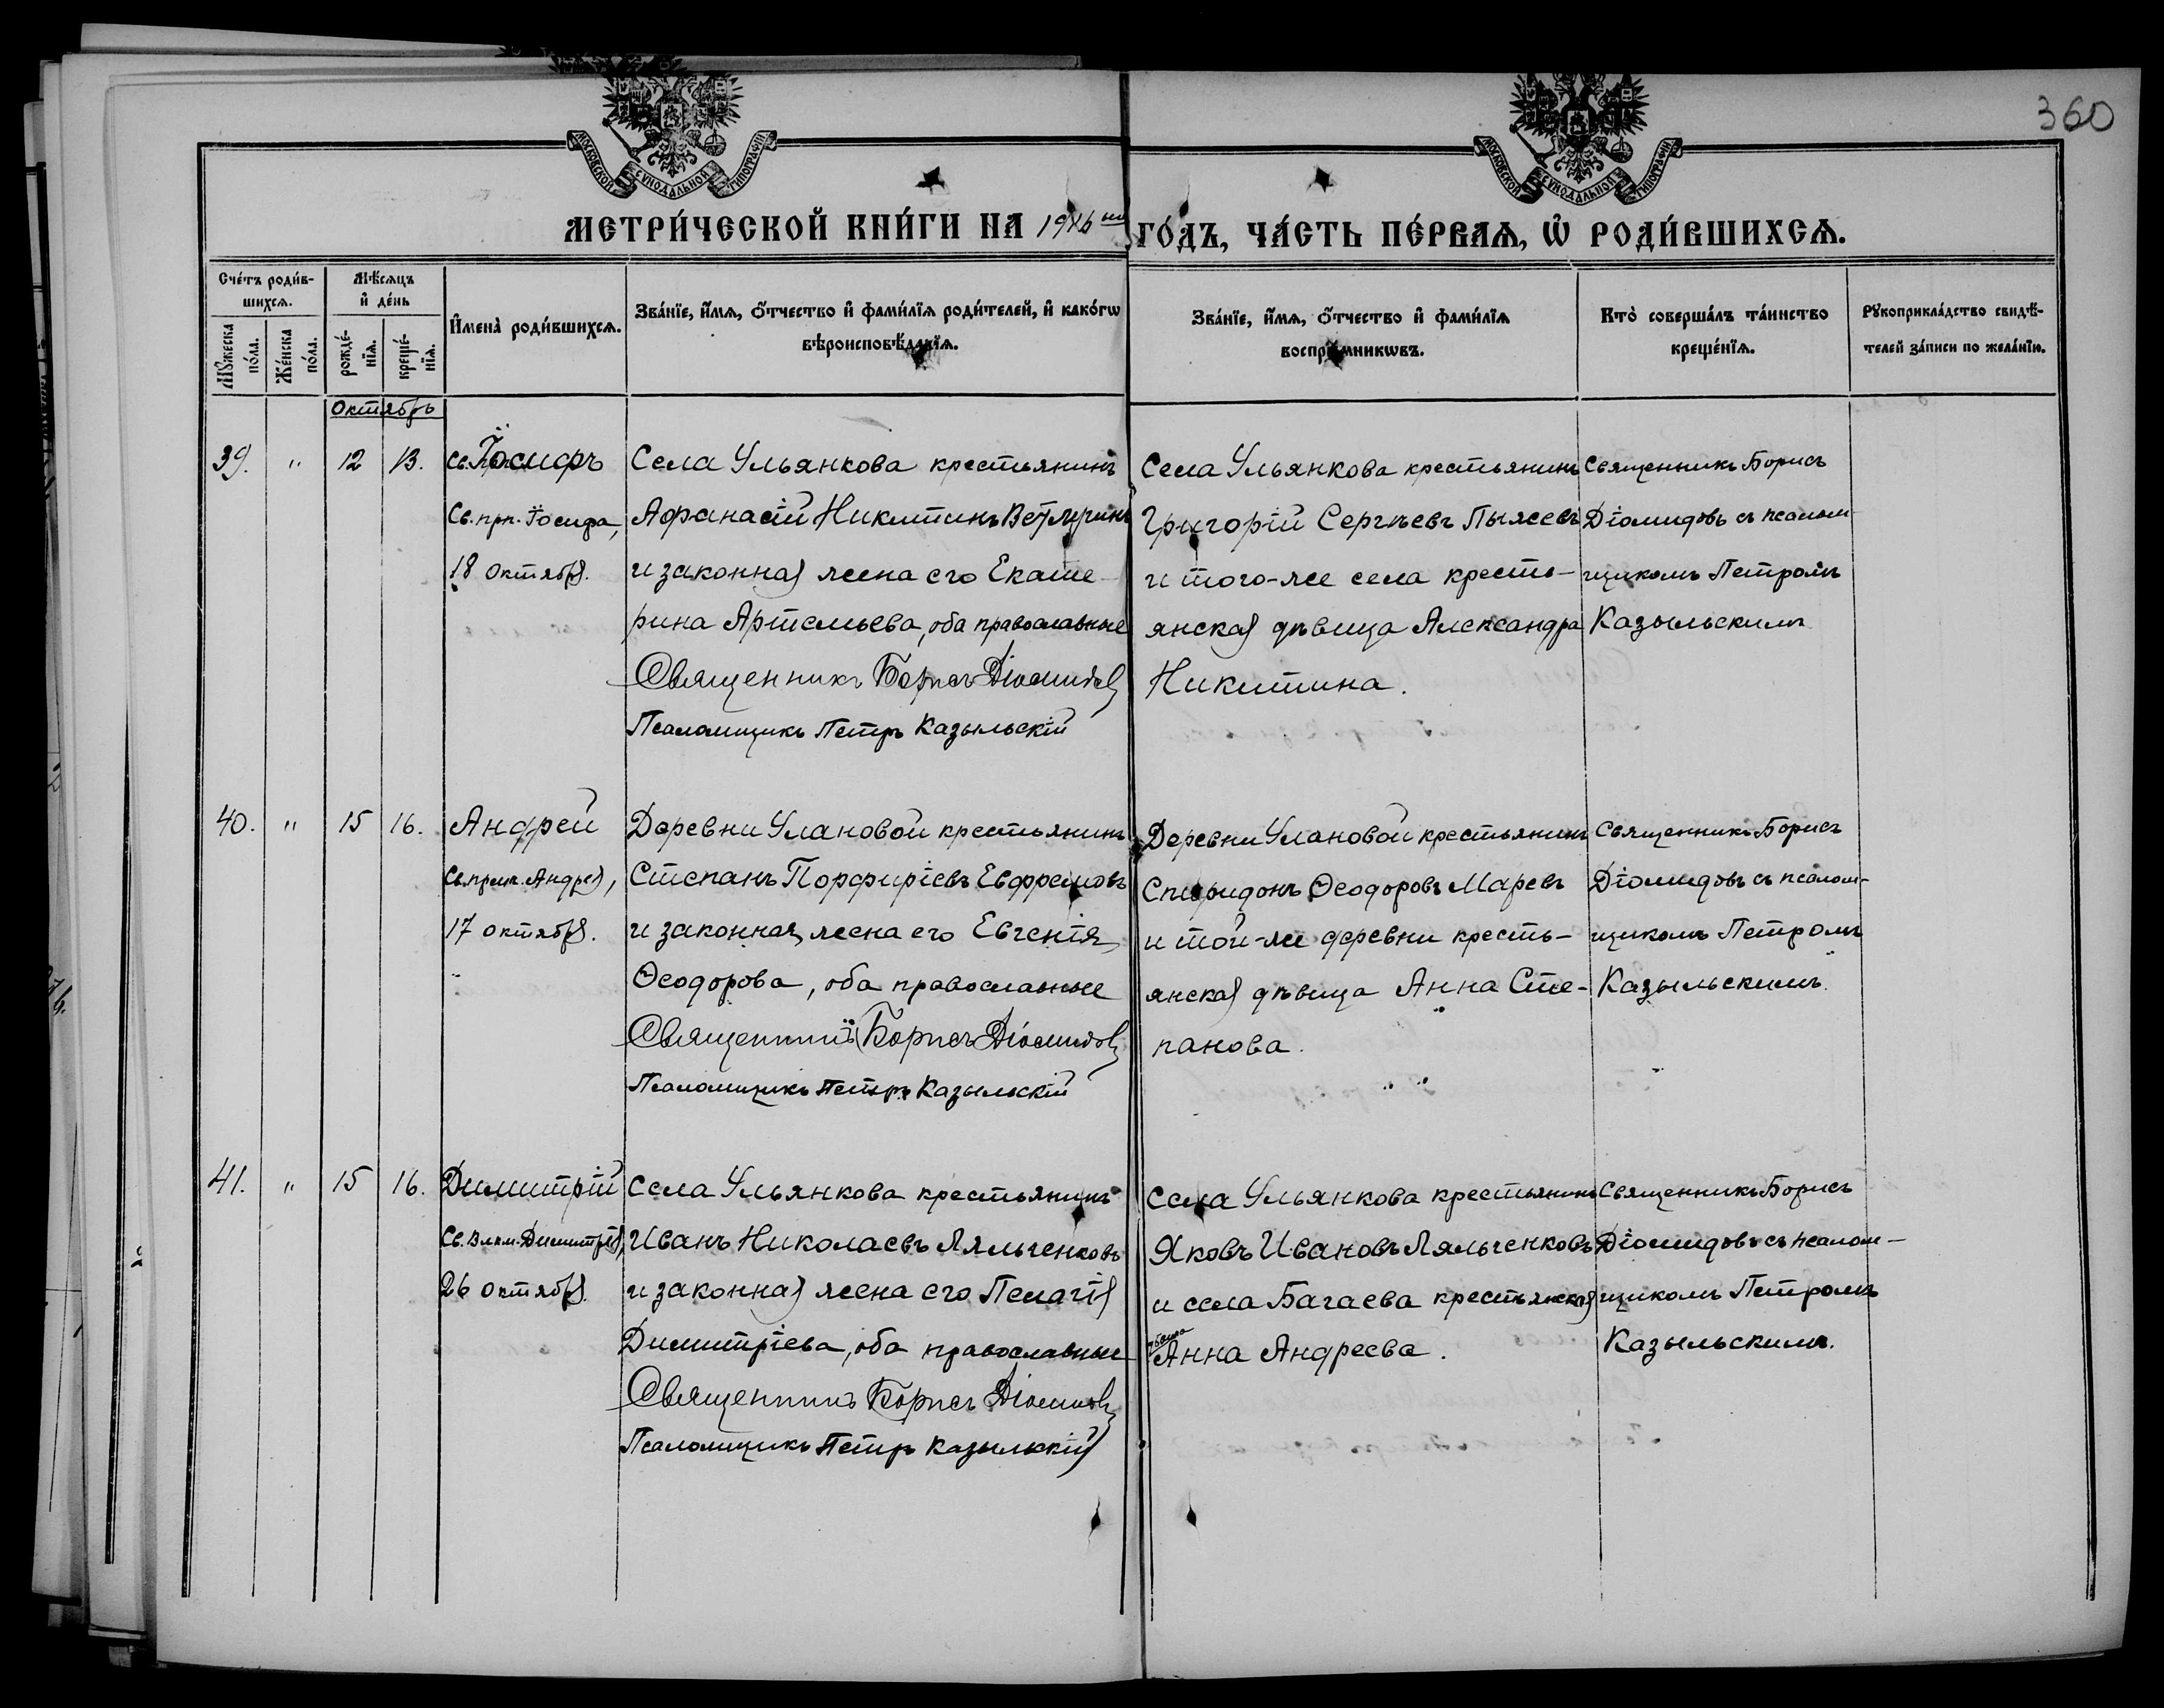 360
МОСКОВСКОЙ СѴНОДАЛЬНОЙ ТИПОГРАФІИ
МОСКОВСКОЙ СѴНОДАЛЬНОЙ ТИПОГРАФІИ
МЕТРИ́ЧЕСКОЙ КНИ́ГИ НА
ГО́ДЪ, ЧА́СТЬ ПЕ́РВАѦ, Ѡ҆ РОДИ́ВШИХСѦ.
Сче́тъ роди́в-
шихсѧ.
Мѣ́сѧцъ
и҆ де́нь
Мꙋ́жеска
по́ла.
Же́нска
по́ла.
рожде́-
нїѧ.
креще́-
нїѧ.
И҆мена̀ роди́вшихсѧ.
Зва́нїе, и҆́мѧ, ѻ҆́тчество и҆ фами́лїѧ роди́телей, и҆ како́гѡ
вѣроисповѣ́данїѧ.
Зва́нїе, и҆́мѧ, ѻ҆́тчество и҆ фами́лїѧ
воспрїе́мникѡвъ.
Кто̀ соверша́лъ та́инство
креще́нїѧ.
Рꙋкоприкла́дство свидѣ́-
телей за́писи по жела́нїю.
Октябрь
39.
"
12
13.
Іосифъ
Св. прп. Іосифа,
18 октября.
Села Ульянкова крестьянинъ
Афанасій Никитинъ Ветлугинъ
и законная жена его Екате-
рина Артемьева, оба православные
Священникъ Борисъ Діомидовъ
Псаломщикъ Петръ Казыльскій
Села Ульянкова крестьянинъ
Григорій Сергѣевъ Пыжевъ
и того-же села кресть-
янская дѣвица Александра
Никитина.
Священникъ Борисъ
Діомидовъ съ псалом-
щикомъ Петромъ
Казыльскимъ
40.
"
15
16.
Андрей
Св. прмч. Андрея,
17 октября.
Деревни Улановой крестьянинъ
Степанъ Порфиріевъ Евфремовъ
и законная жена его Евгенія
Ѳеодорова, оба православные
Священникъ Борисъ Діомидовъ
Псаломщикъ Петръ Казыльскій
Деревни Улановой крестьянинъ
Спиридонъ Ѳеодоровъ Маревъ
и той-же деревни кресть-
янская дѣвица Анна Сте-
панова.
Священникъ Борисъ
Діомидовъ съ псалом-
щикомъ Петромъ
Казыльскимъ.
41.
"
15
16.
Димитрій
Св. Влкм. Димитрія,
26 октября.
Села Ульянкова крестьянинъ
Иванъ Николаевъ Ляльченковъ
и законная жена его Пелагія
Димитріева, оба православные
Священникъ Борисъ Діомидовъ
Псаломщикъ Петръ Казыльскій
Села Ульянкова крестьянинъ
Яковъ Ивановъ Ляльченковъ
и села Багаева крестьянская
дѣвица
Анна Андреева.
Священникъ Борисъ
Діомидовъ съ псалом-
щикомъ Петромъ
Казыльскимъ.